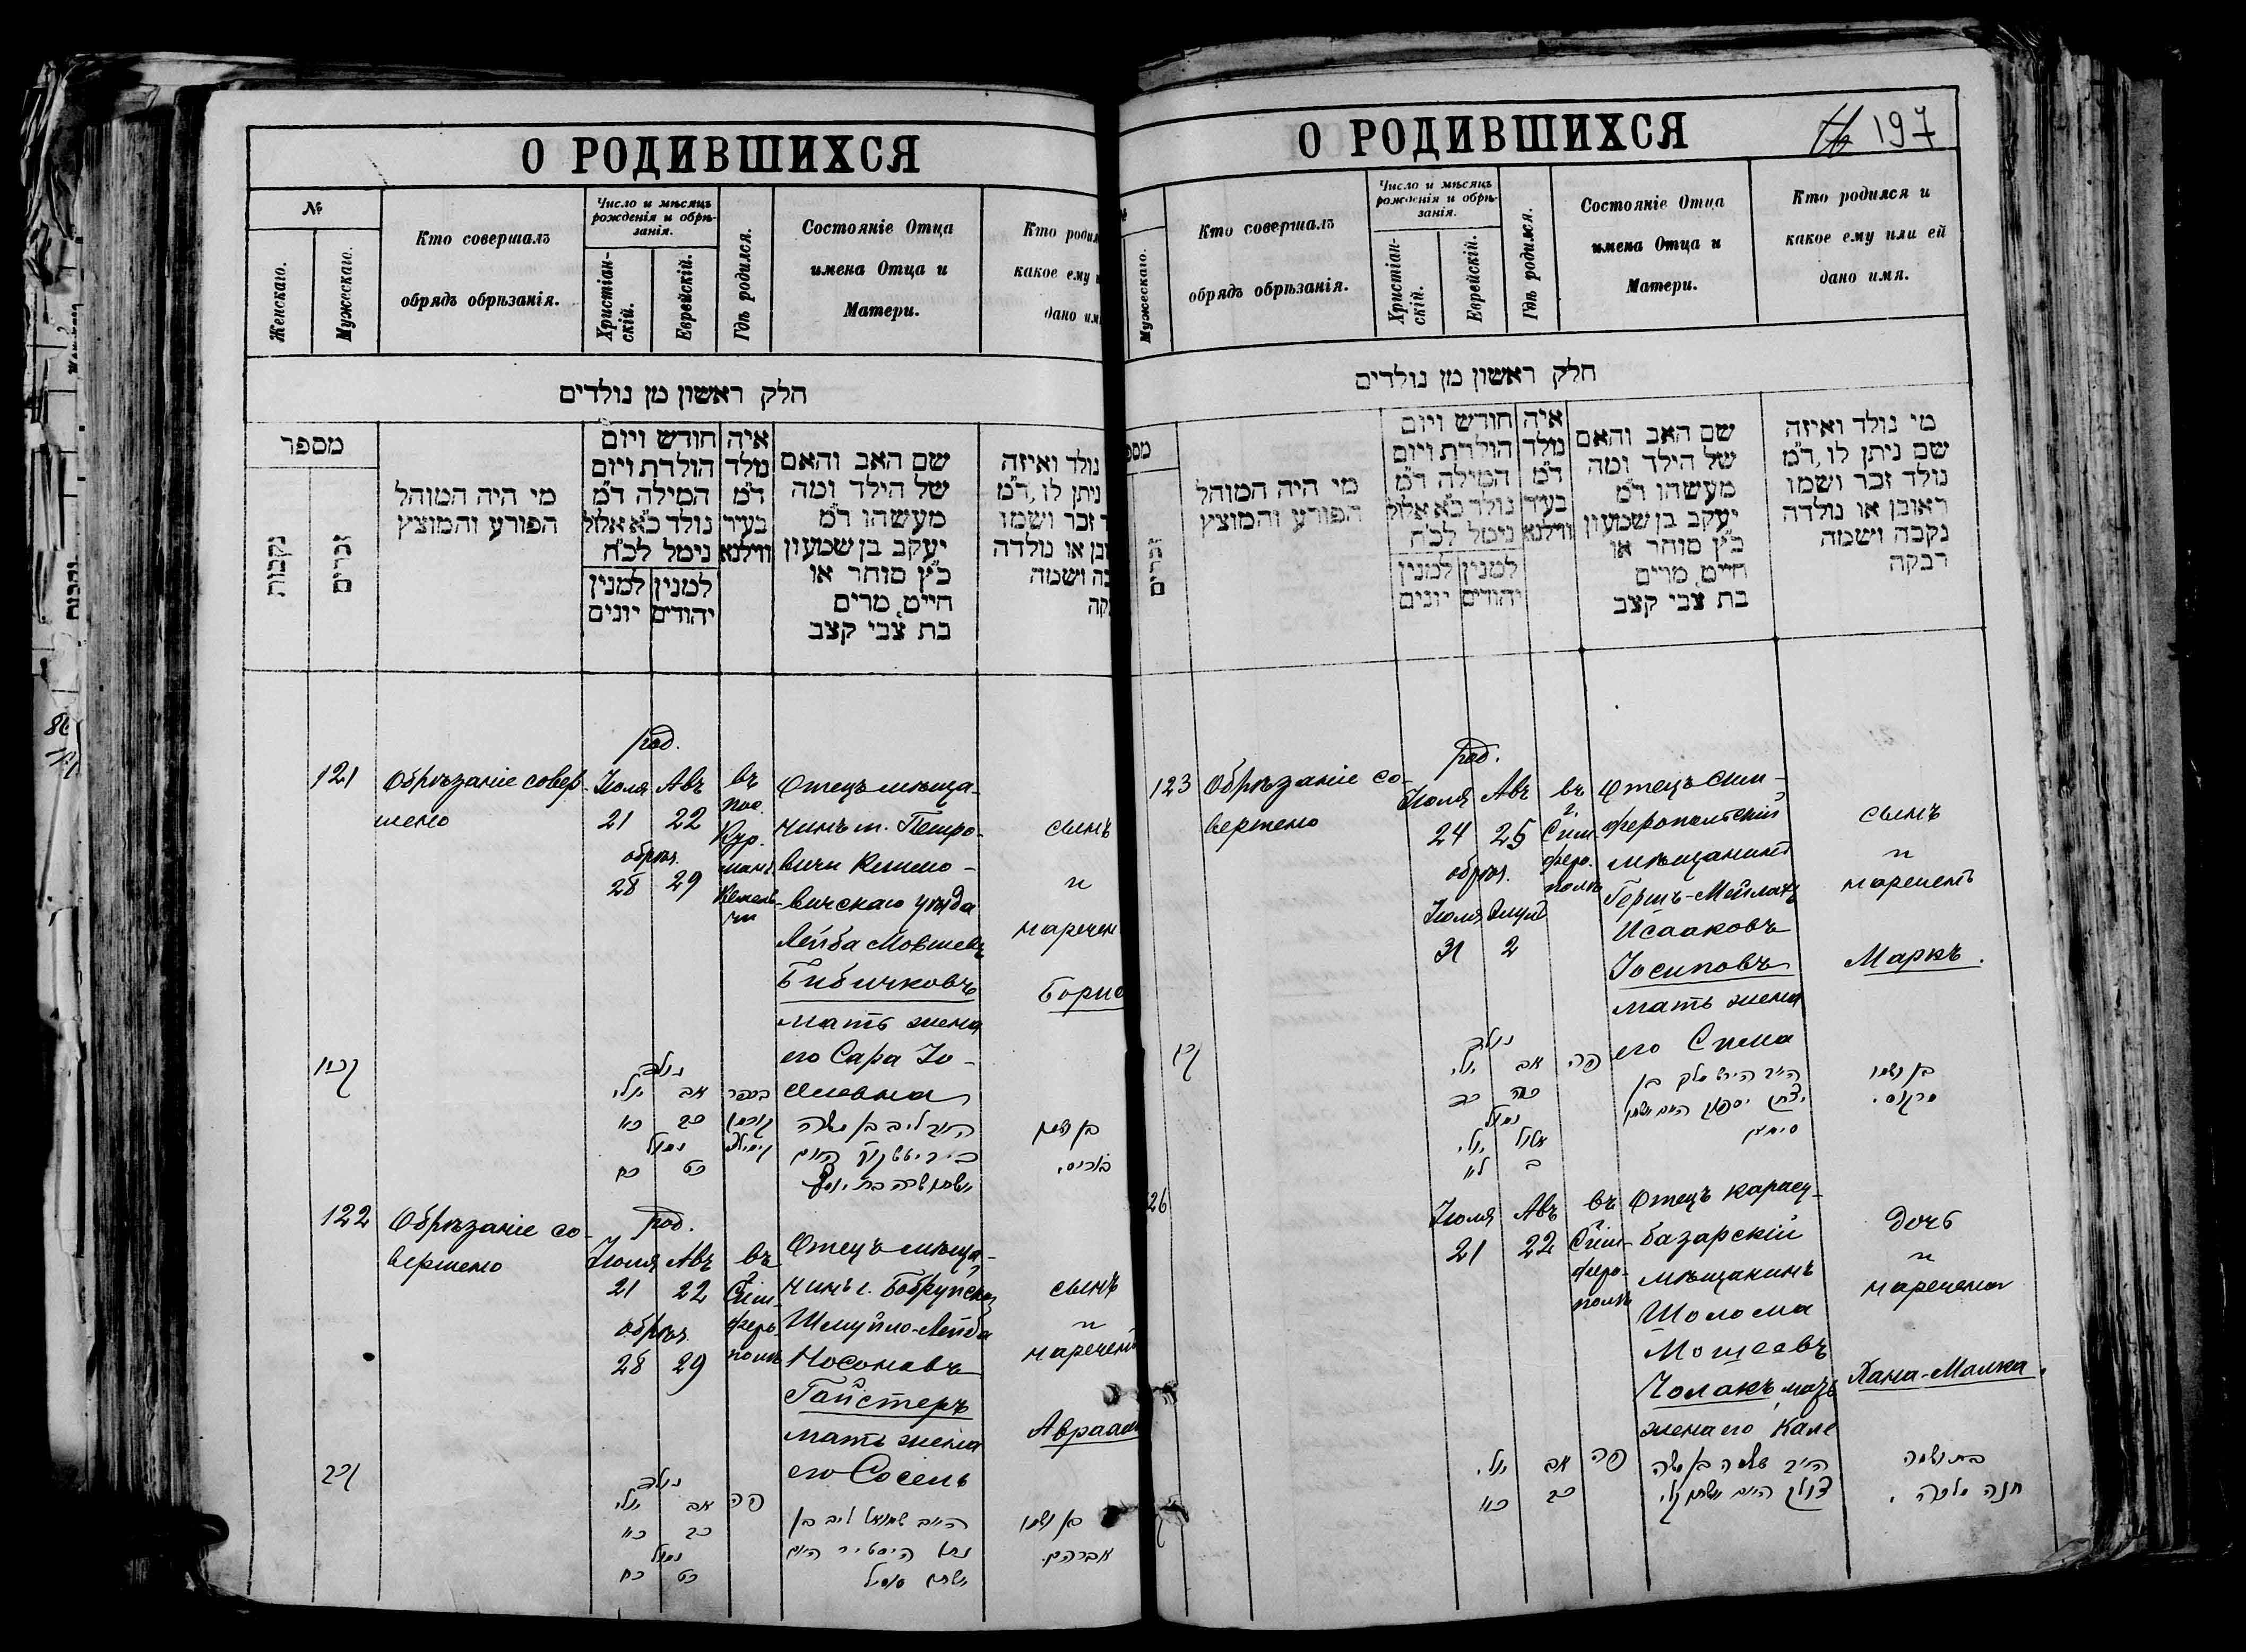 О РОДИВШИХСЯ
№
Женскаго.
Мужескаго.
Кто совершалъ
обрядъ обрѣзанія.
Число и мѣсяцъ
рожденія и обрѣ-
занія.
Христіан-
скій.
Еврейскій.
Гдѣ родился.
Состояніе Отца
имена Отца и
Матери.
Кто родил
какое ему и
дано им
חלק ראשון מן נולדים
מספר
נקבות
זכרים
מי היה המוהל
הפורע והמוצץ
חודש ויום
הולדת ויום
המילה ד״מ
נולד כ״א אלול
נימל לכ״ח
למנין למנין
יהודים יונים
איה
נולד
ד״מ
בעיר
ווילנא
שם האב והאם
של הילד ומה
מעשהו ד״מ
יעקב בן שמעון
כ״ץ סוחר או
חייט, מרים
בת צבי קצב
נולד ואיזה
ניתן לו, ד״מ
זכר ושמו
ובן או נולדה
בה ושמה
קה
121
Обрѣзаніе совер-
шено
род.
Іюля Авъ
21 22
обрѣз.
28 29
въ
пос.
Кур.
Отецъ мѣща-
нинъ м. Петро-
вичи Климо-
вичскаго уѣзда
Лейба Мовшевъ
Бибичковъ
мать жена
его Сара Іо-
сынъ
и
наречен
Борис
נולד
יולי אב
כא כב
נמול
כח כט
הי״ר ליב בן משה
בן ושמו
בוריס.
122
Обрѣзаніе со-
вершено
род.
Іюля Авъ
21 22
обрѣз.
28 29
въ
г.
Сим-
феро-
полѣ
Отецъ мѣща-
нинъ г. Бобруйска
Шмуйло-Лейба
Носоновъ
Гайстеръ
мать жена
его Сосель
сынъ
и
нареченъ
Авраам
קכב
נולד
יולי אב פה
כא כב
נמול
כח כט
שמואל ליב בן
נתן הייסטיר
בן ושמו
אברהם.
О РОДИВШИХСЯ
197
Мужескаго.
Кто совершалъ
обрядъ обрѣзанія.
Число и мѣсяцъ
рожденія и обрѣ-
занія.
Христіан-
скій.
Еврейскій.
Гдѣ родился.
Состояніе Отца
имена Отца и
Матери.
Кто родился и
какое ему или ей
дано имя.
חלק ראשון מן נולדים
מספ
זכרים
מי היה המוהל
הפורע והמוצץ
חודש ויום
הולדת ויום
המילה ד״מ
נולד כ״א אלול
נימל לכ״ח
למנין למנין
יהודים יונים
איה
נולד
ד״מ
בעיר
ווילנא
שם האב והאם
של הילד ומה
מעשהו ד״מ
יעקב בן שמעון
כ״ץ סוחר או
חייט, מרים
בת צבי קצב
מי נולד ואיזה
שם ניתן לו, ד״מ
נולד זכר ושמו
ראובן או נולדה
נקבה ושמה
רבקה
123
Обрѣзаніе со-
вершено
род.
Іюля Авъ
24 25
обрѣз.
Іюля Элулъ
31 2
въ
г.
Сим-
феро-
полѣ
Отецъ сим-
феропольскій
мѣщанинъ
Гершъ-Мейлахъ
Исааковъ
Іосиповъ
мать жена
его Сима
сынъ
и
нареченъ
Маркъ.
נולד
יולי אב פה
כד כה
נמול
יולי אלול
לא ב
בן ושמו
מרקוס.
26
Іюля Авъ
21 22
въ
г.
Сим-
феро-
полѣ
Отецъ карасу-
базарскій
мѣщанинъ
Шолома
Мошеевъ
Чолакъ мать
жена его Кале
дочь
и
наречена
Хана-Малка.
יולי אב פה
כא כב
הי״ר שלמה בן משה
בת ושמה
חנה מלכה.